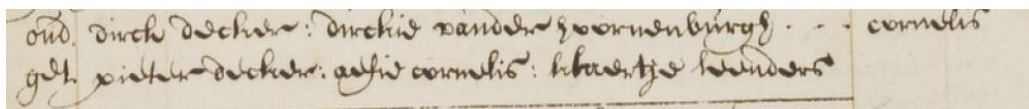 oud. dirck decker: dirckie vander hoornenburgh . . . cornelis
get. pieter decker: aefie cornelis: claertge leenders